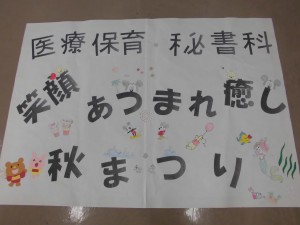 医療保育 秘書科
笑顔あつまれ癒し
秋まつり